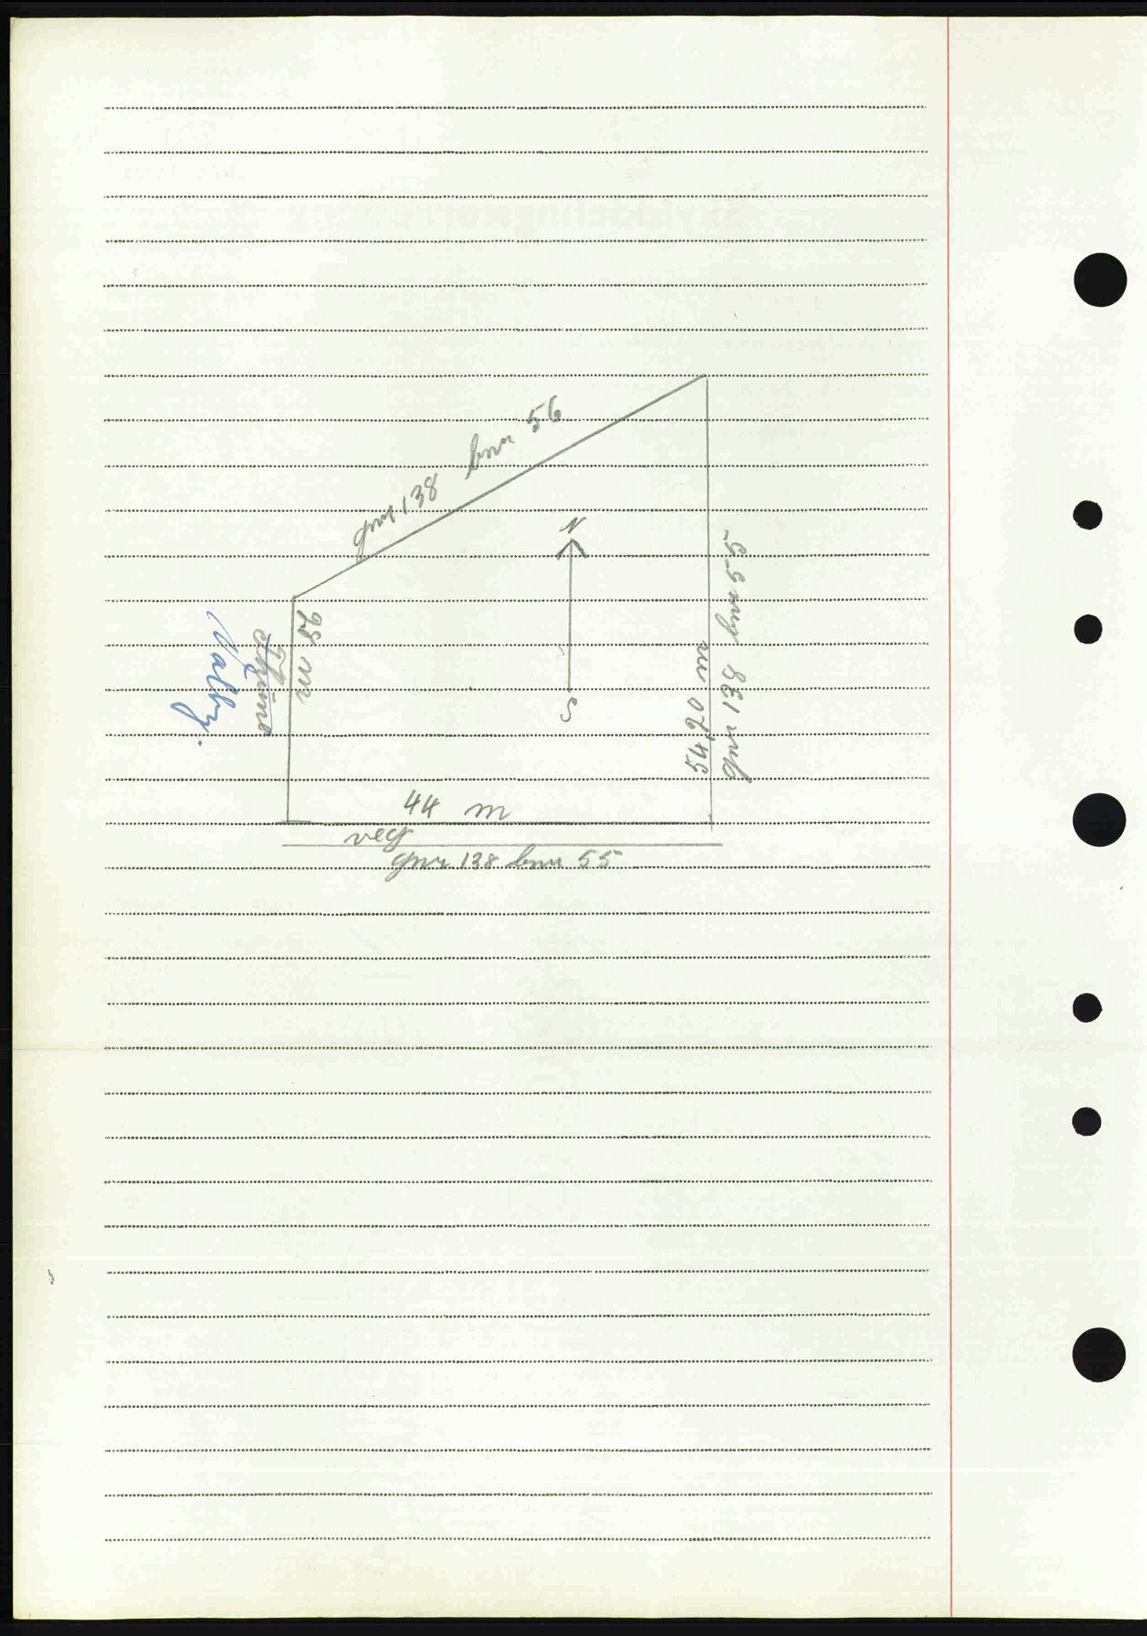 gnr 138 bnr 56
N
S
54,20 m
gnr 138 bnr 55
Valby.
44 m
veg
gnr 138 bnr 55